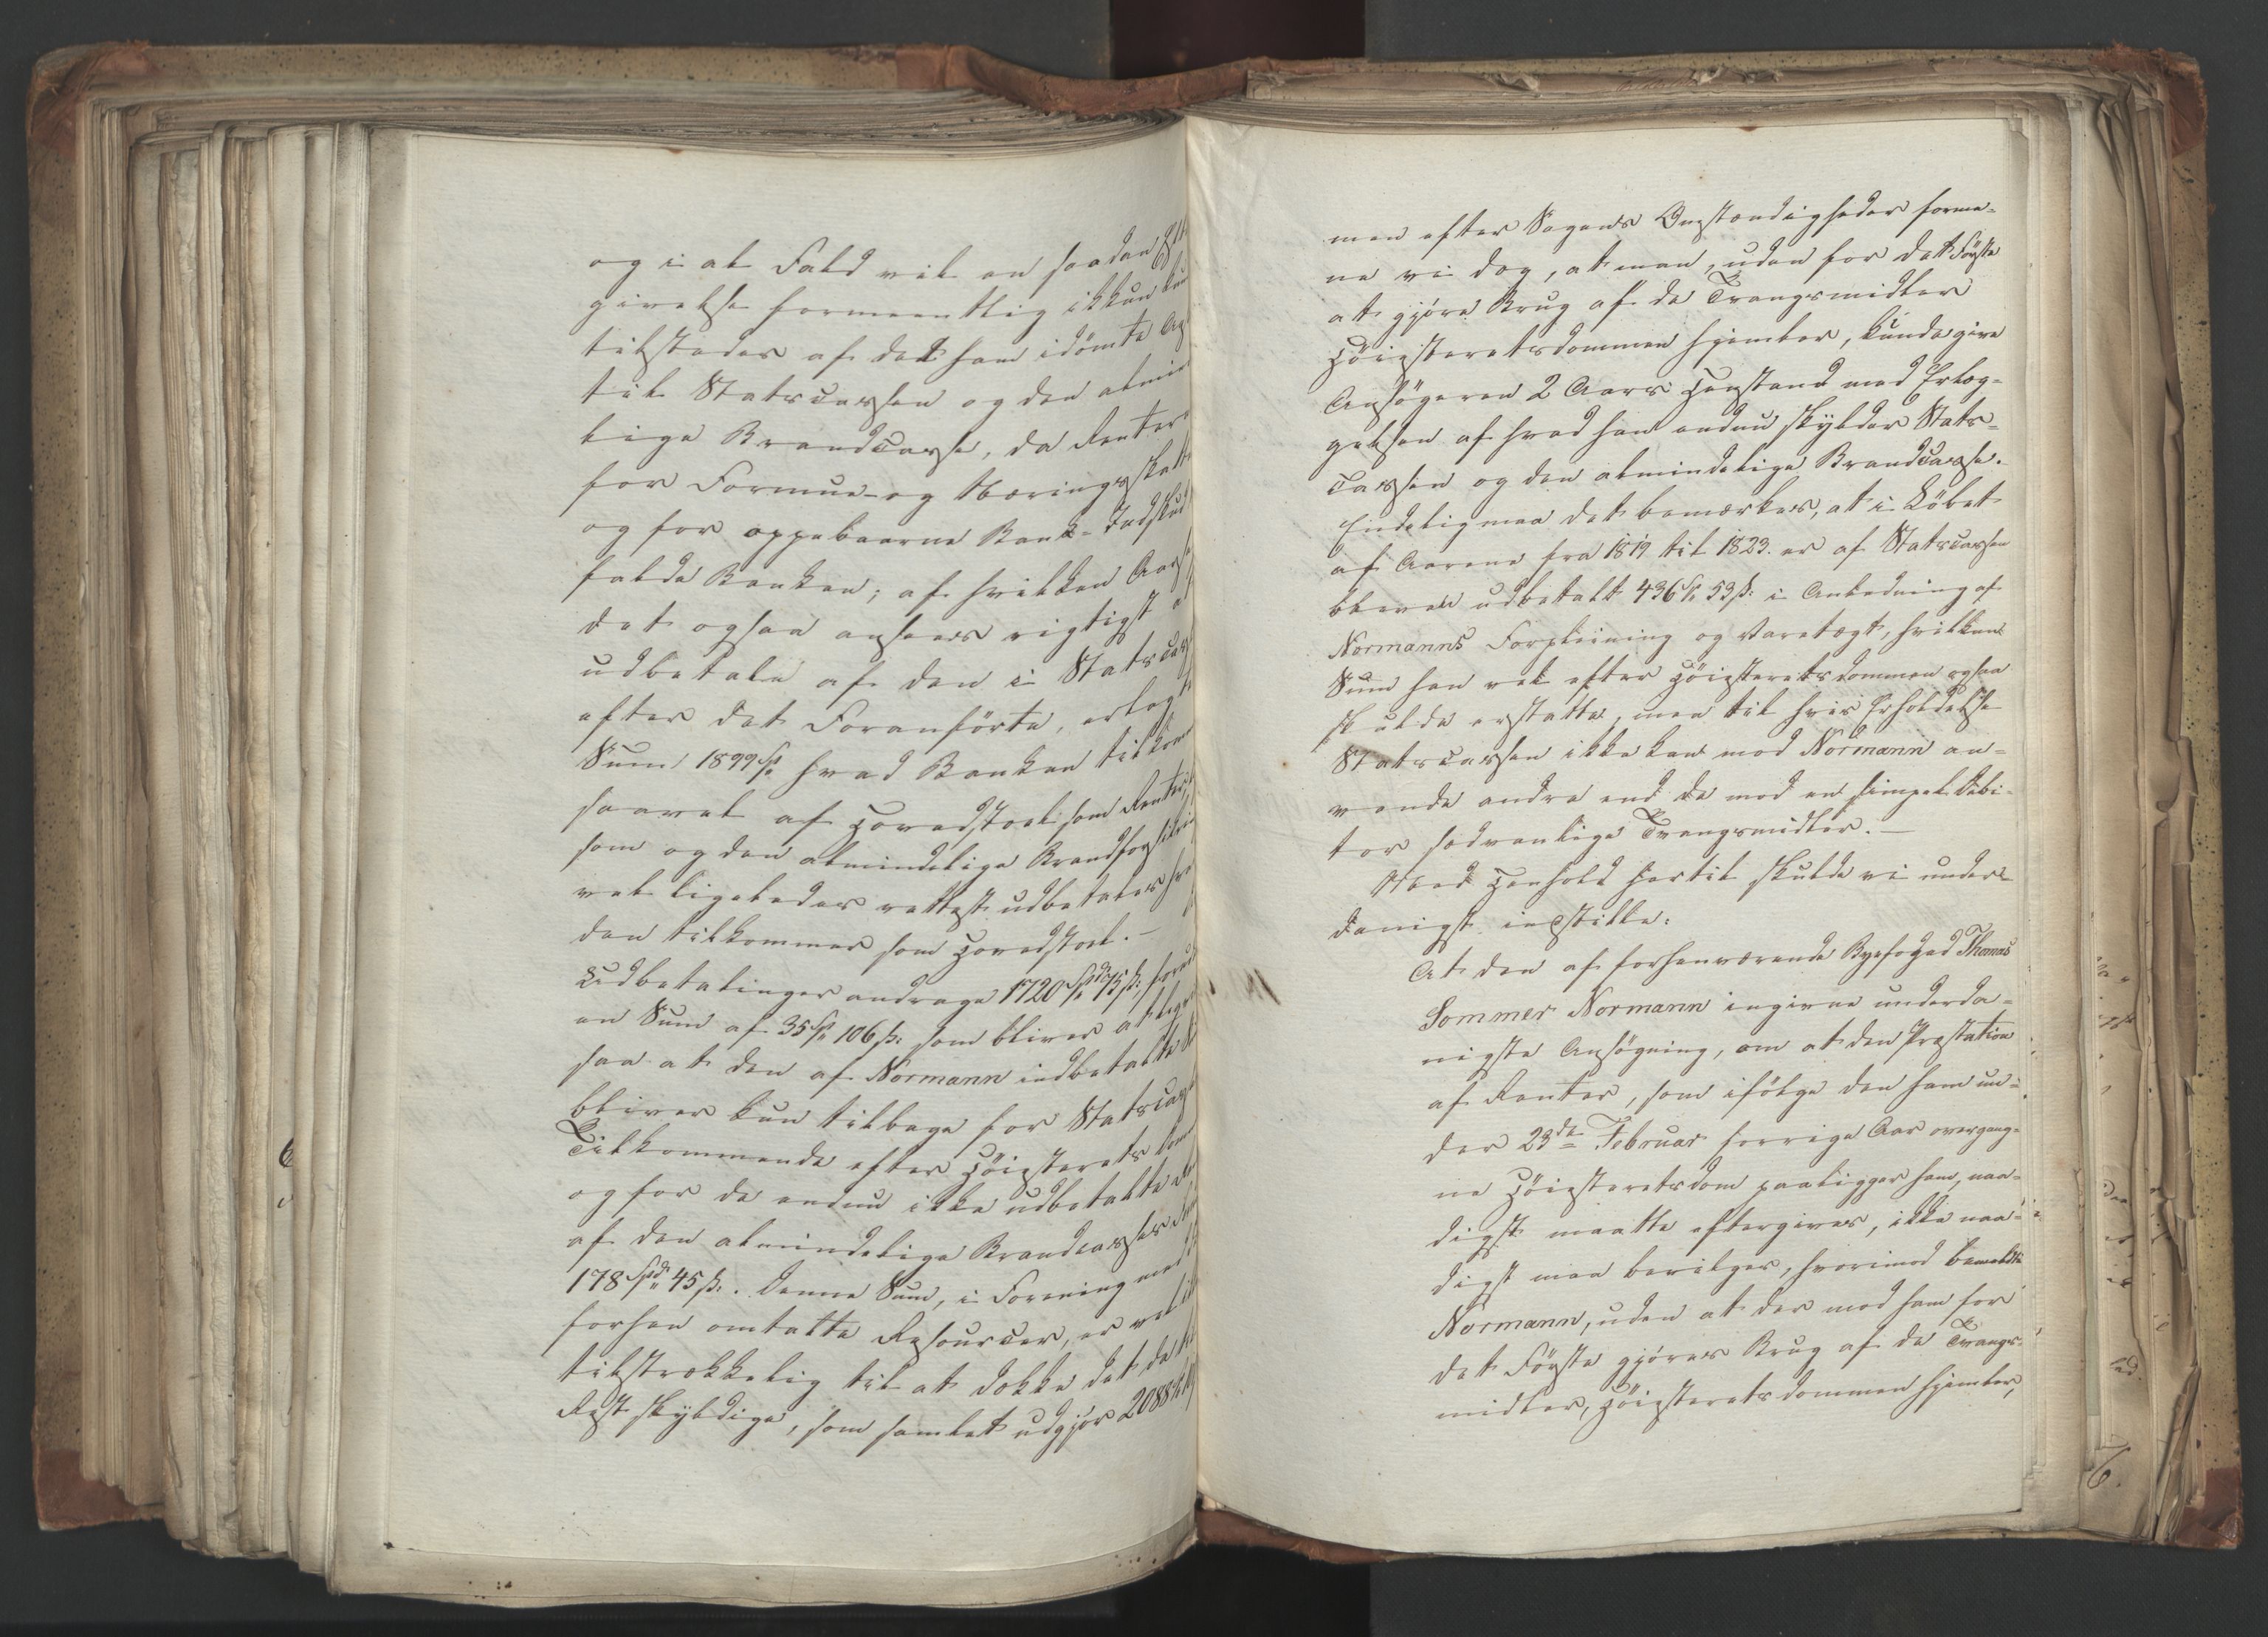 og i al Fald vil en saadan
givelse formeentlig ikkun
tilstedes af det ham idömte
til Statscassen og den almin
lige Brandcasse, da Renter
for Formue- og Næringsskatt
og for oppebaarne Bank-Indskud
falde Banken; af hvilken Aars
det ogsaa ansees rigtigst at
udbetale af den i Statscas
efter det Foranförte, erlagte
Sum 1899 Sp hvad Banken tilkom
saavel af Hovedstoel som Renter,
som og den almindelige Brandforsikrin
vel ligeledes rettest udbetales hva
den tilkommer som Hovedstoel. —
Udbetalinger andrage 1720 Spd 75 ß, foruden
en Sum af 35 Sp 106 ß. som bliver at
saa at den af Normann indbetalte
bliver kun tilbage for Statscas
Tilkommende efter Höiesterets Dom
og for de endnu ikke udbetalte
af den almindelige Brandcasses
178 Spd 45 ß. Denne Sum, i Forening med
forhen omtalte Resourcer, er vel
tilstrækkelig til at dække det da
Rest skyldige, som samlet udgjör 2088
men efter Sagens Omstændigheder forme-
ne vi dog, at man, uden for det Förste
at gjöre Brug af de Tvangsmidler
Höiesteretsdommen hjemler, kunde give
Ansögeren 2 Aars Henstand med Erlæg-
gelsen af hvad han endnu skylder Stats-
cassen og den almindelige Brandcasse.
Endelig maa det bemærkes, at i Löbet
af Aarene fra 1819 til 1823. er af Statscassen
bleven udbetalt 436 Sp 53 ß. i Anledning af
Normanns Forpleining og Varetægt, hvilken
Sum han vel efter Höiesteretsdommen ogsaa
skulde erstatte, men til hvis Erholdelse
Statscassen ikke kan mod Normann an-
vende andre end de mod en simpel Debi-
tor sædvanlige Tvangsmidler. —
Med Henhold hertil skulde vi under-
danigst indstille:
At den af forhenværende Byefoged Thomas
Sommer Normann ingivne underda-
nigste Ansögning, om at den Præstation
af Renter, som ifölge den ham un-
der 23de Februar forrige Aar overgang-
ne Höiesteretsdom paaligger ham, naa-
digst maatte eftergives, ikke naa-
digst maa bevilges, hvorimod bemeldte
Normann, uden at der mod ham for
det Förste gjöres Brug af de Tvangs-
midler, Höiesteretsdommen hjemler,